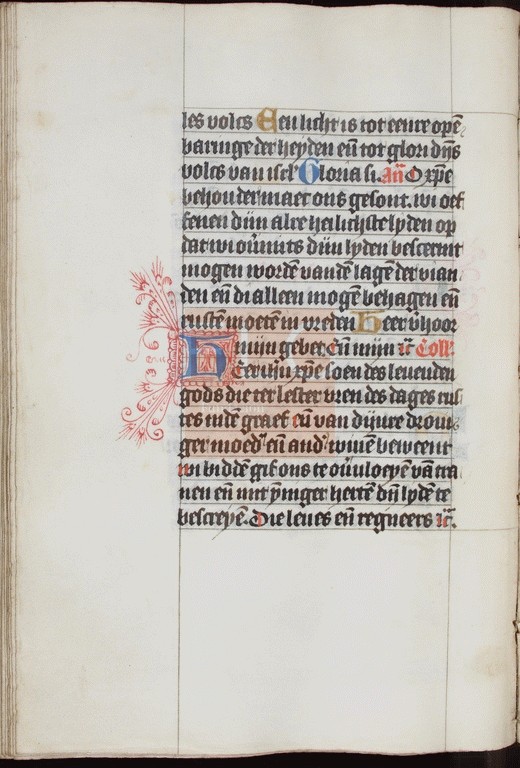 les volcs Een licht is tot eenre opē
baringe der heyden eñ tot glori dijns
volcs van isrl' Gloria si. Añ O xp̄e
behouder maect ons gesont. wi oef
fenen dijn alre heilichste lyden op
dat wi ouūits dijn lyden bescermt
mogen wordē van dē lagē der vian
den eñ di alleen mogē behagen eñ
rustē moetē in vreden Heer v̄hoor
mijn gebet. eñ mijn ic̄ Coll'
Here ihū xp̄e soen des leuenden
gods die ter lester vren des dages rus
tes indē graef eñ van dijnre droui
ger moed' eñ and' wiuē beweent
wi biddē gif ons te ouūloeyē vā tra
nen eñ mit ynniger hertē dijn lydē te
bescreyē. Die leues eñ regneers ic̄.